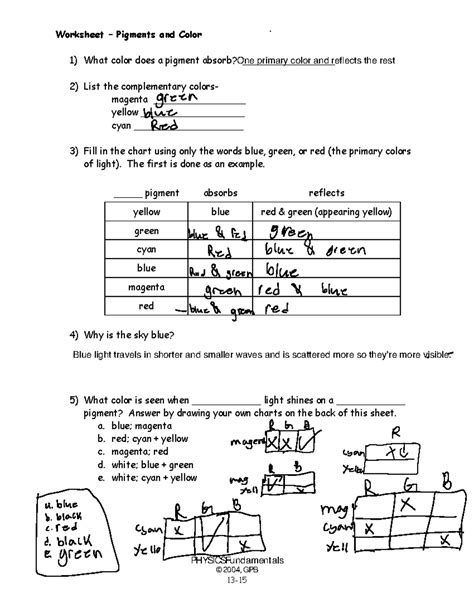 Worksheet – Pigments and Color
1) What color does a pigment absorb?One primary color and reflects the rest
2) List the complementary colors-
magenta green
yellow blue
cyan Red
3) Fill in the chart using only the words blue, green, or red (the primary colors
of light). The first is done as an example.
______ pigment absorbs reflects
yellow blue red & green (appearing yellow)
green blue & red green
cyan Red blue & green
blue Red & green blue
magenta green red & blue
red blue & green red
4) Why is the sky blue?
Blue light travels in shorter and smaller waves and is scattered more so they're more visible.
5) What color is seen when ____________ light shines on a ____________
pigment? Answer by drawing your own charts on the back of this sheet.
a. blue; magenta
b. red; cyan + yellow
c. magenta; red
d. white; blue + green
e. white; cyan + yellow
R G B
magenta X X
R
cyan X
yello
mag
yell
R G B
mag X
cyan X
yell
a. blue
b. black
c. red
d. black
e. green
R G B
cyan X
yello X
PHYSICSFundamentals
© 2004, GPB
13-15